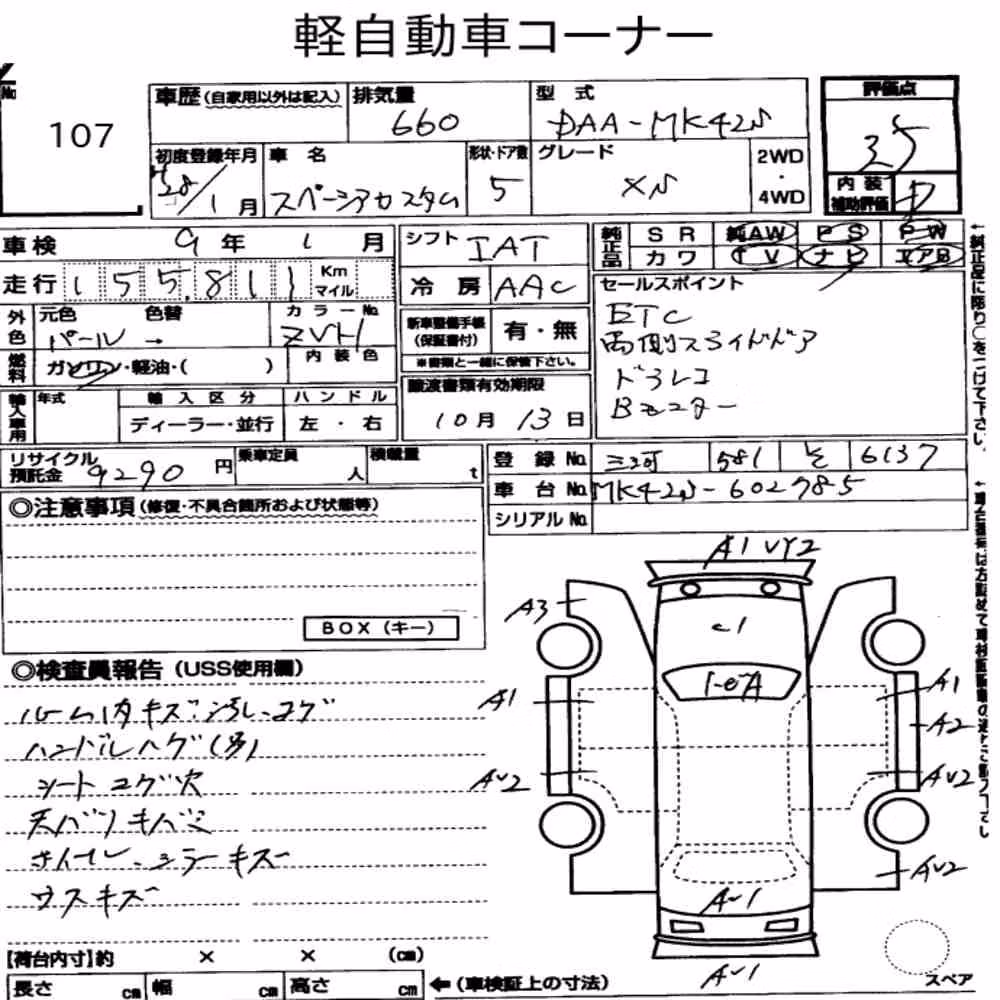 軽自動車コーナー
No
107
車歴(自家用以外は記入) 排気量 型式 評価点
660 DAA-MK42S
初度登録年月 車名 形状・ドア数 グレード 2WD・4WD
28/1月 スペーシアカスタム 5 XS
35
内装補助評価 D
車検 9年 1月 シフト IAT 純正品 SR 純AW PS PW
カワ TV ナビ エアB
走行 155,811 Km マイル 冷房 AAC
セールスポイント
外色 元色 色替 カラーNo.
パール → ZVH
新車整備手帳(保証書付) 有・無
※書類と一緒に保管下さい。
ETC
両側スライドドア
ドラレコ
Bモニター
燃料 ガソリン・軽油・( ) 内装色
譲渡書類有効期限
10月 13日
輸入車用 年式 輸入区分 ハンドル
ディーラー・並行 左・右
リサイクル預託金 9290円 乗車定員 人 積載量 t
登録No. 三河 581 そ 6137
車台No. MK42S-602785
シリアルNo.
◎注意事項(修復・不具合箇所および状態等)
BOX(キー)
◎検査員報告(USS使用欄)
ルーム内キズ・汚レ・コゲ
ハンドルハゲ(多)
シートコゲ穴
天バリキバミ
キズ
ウスキズ
A1 UY2
A3
C1
A1
AU2
A1
A2
AU2
AU2
AU1
AU1
スペア
【荷台内寸】約 × × (cm)
長さ cm 幅 cm 高さ cm ←(車検証上の寸法)